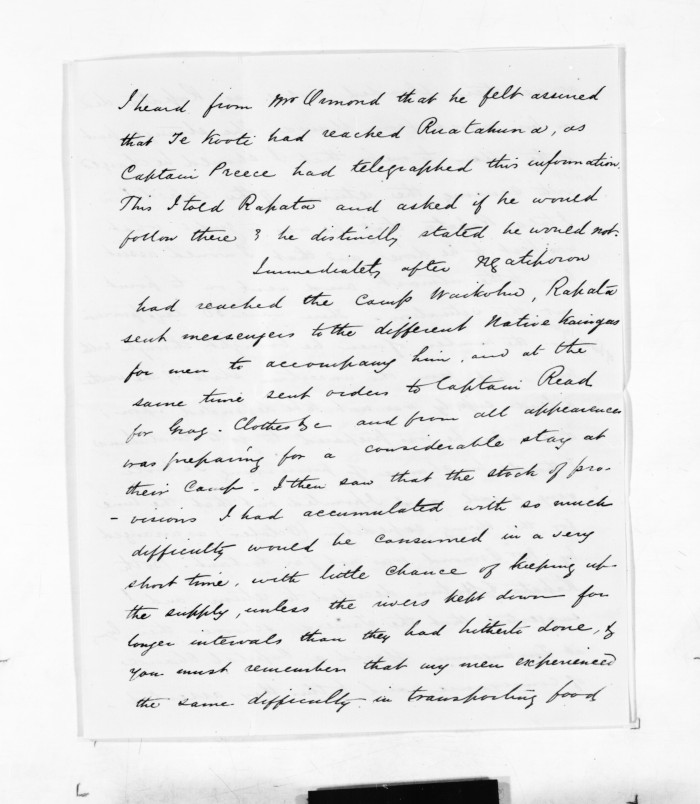 I heard from Mr Ormond that he felt assured
that Te Kooti had reached Ruatahuna, as
Captain Preece had telegraphed this information.
This I told Rapata and asked if he would
follow there & he distinctly stated he would not.
Immediately after Ngatiporou
had reached the camp Waikohu, Rapata
sent messengers to the different Native Kaingas
for men to accompany him, and at the
same time sent orders to Captain Read
for Grog. Clothes &c and from all appearances
was preparing for a considerable stay at
their Camp. I then saw that the stock of pro-
-visions I had accumulated with so much
difficulty would be consumed in a very
short time, with little chance of keeping up
the supply, unless the rivers kept down for
longer intervals than they had hitherto done, &
you must remember that my men experienced
the same difficulty in transporting food